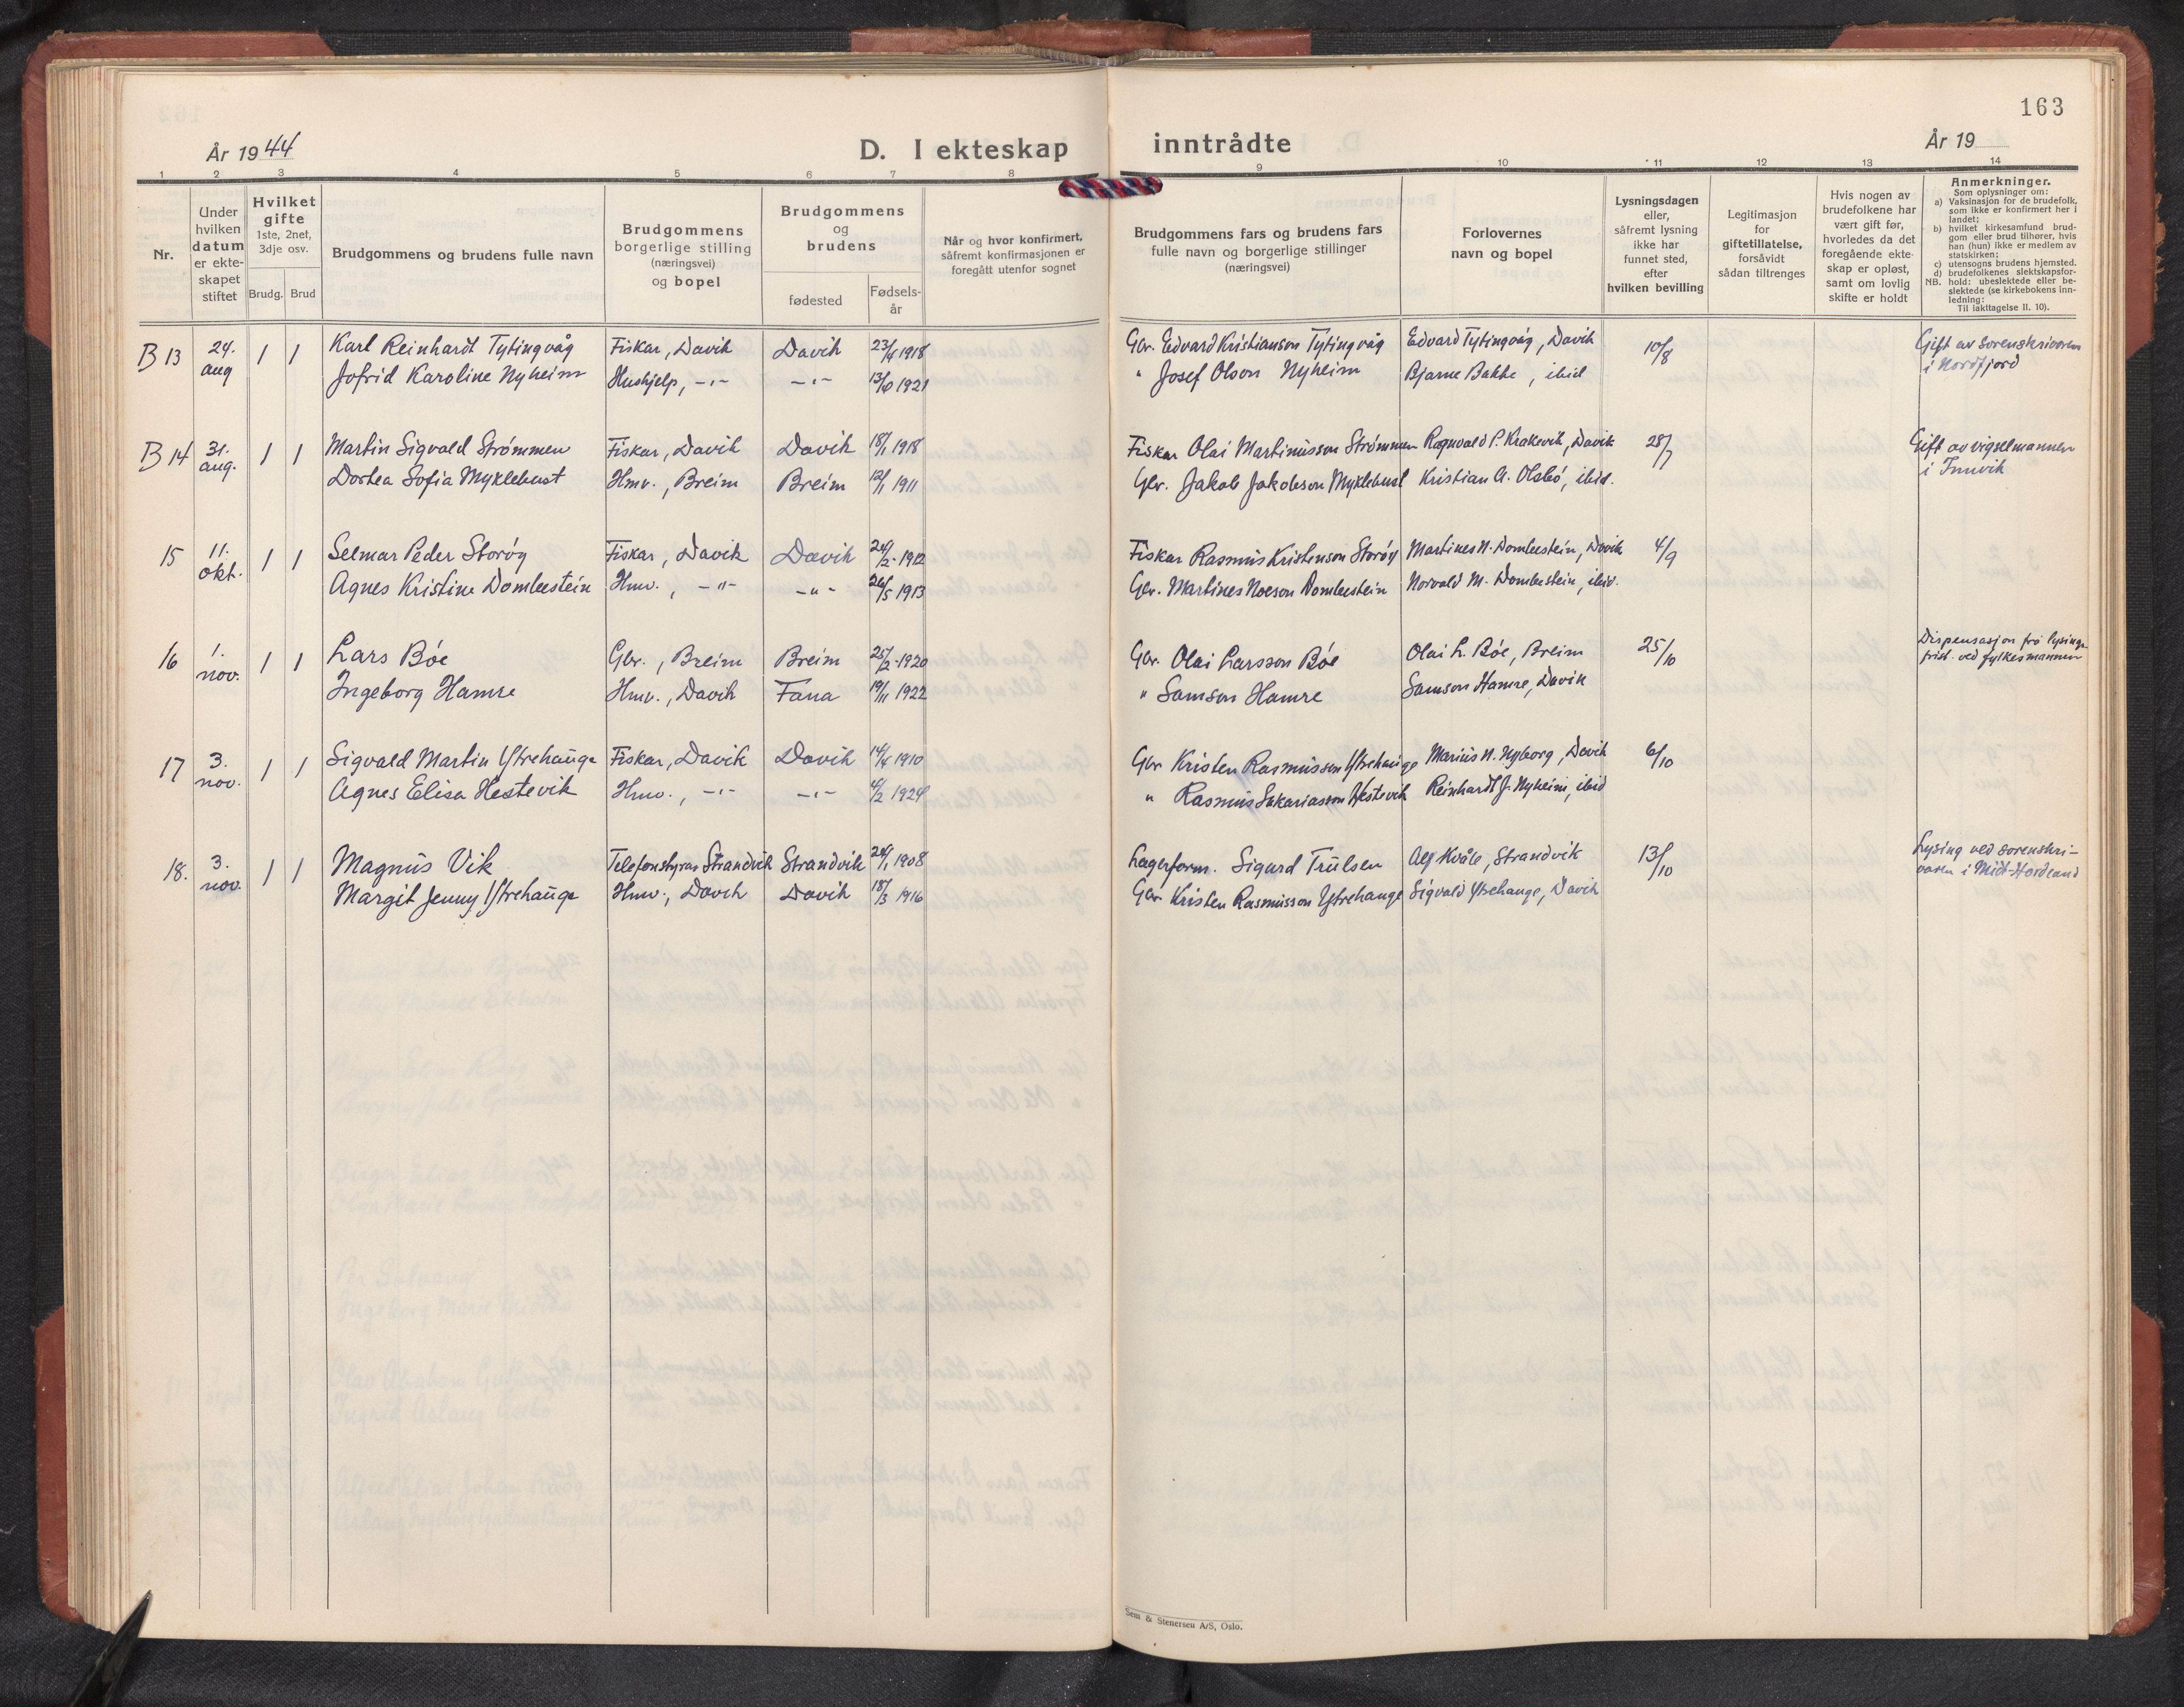 163
År 1944
D. I ekteskap inntrådte
År 19
1 2 3 4 5 6 7 8 9 10 11 12 13 14
Nr.
Under
hvilken
datum
er ekte-
skapet
stiftet
Hvilket
gifte
1ste, 2net,
3dje osv.
Brudg. Brud
Brudgommens og brudens fulle navn
Brudgommens
borgerlige stilling
(næringsvei)
og bopel
Brudgommens
og
brudens
fødested
Fødsels-
år
Når og hvor konfirmert,
såfremt konfirmasjonen er
foregått utenfor sognet
Brudgommens fars og brudens fars
fulle navn og borgerlige stillinger
(næringsvei)
Forlovernes
navn og bopel
Lysningsdagen
eller,
såfremt lysning
ikke har
funnet sted,
efter
hvilken bevilling
Legitimasjon
for
giftetillatelse,
forsåvidt
sådan tiltrenges
Hvis nogen av
brudefolkene har
vært gift før,
hvorledes da det
foregående ekte-
skap er opløst,
samt om lovlig
skifte er holdt
Anmerkninger.
Som oplysninger om:
a) Vaksinasjon for de brudefolk,
som ikke er konfirmert her i
landet;
b) hvilket kirkesamfund brud-
gom eller brud tilhører, hvis
han (hun) ikke er medlem av
statskirken;
c) utensogns brudens hjemsted.
d) brudefolkenes slektskapsfor-
NB. hold: ubeslektede eller be-
slektede (se kirkebokens inn-
ledning:
Til iakttagelse II. 10).
B 13 24. aug 1 1 Karl Reinhardt Tytingvåg Fiskar, Davik Davik 23/4 1918 Gbr. Edvard Kristianson Tytingvåg Edvard Tytingvåg, Davik 10/8 Gift av sorenskrivaren
Jofrid Karoline Nyheim Hushjelp, -"- -"- 13/10 1921 " Josef Olson Nyheim Bjarne Bakke, ibid i Nordfjord
B 14 31. aug. 1 1 Martin Sigvald Strømmen Fiskar, Davik Davik 18/1 1918 Fiskar Olai Martinusson Strømmen Ragnvald P. Krakevik, Davik 28/7 Gift av vigselmannen
Dortea Sofia Myklebust Hmv., Breim Breim 12/1 1911 Gbr. Jakob Jakobson Myklebust Kristian A. Olsbø, ibid. i Innvik
15 11. okt. 1 1 Selmar Peder Storøy Fiskar, Davik Davik 24/2 1912 Fiskar Rasmus Kristenson Storøy Martines N. Dombestein, Davik 4/9
Agnes Kristine Dombestein Hmv., -"- -"- 26/5 1913 Gbr. Martines Noeson Dombestein Norvald M. Dombestein, ibid.
16 1. nov. 1 1 Lars Bøe Gbr., Breim Breim 25/2 1920 Gbr. Olai Larsson Bøe Olai L. Bøe, Breim 25/10 Dispensasjon frå lysings-
Ingeborg Hamre Hmv., Davik Fana 19/11 1922 " Samson Hamre Samson Hamre, Davik frist ved fylkesmannen
17 3. nov. 1 1 Sigvald Martin Ytrehauge Fiskar, Davik Davik 14/4 1910 Gbr Kristen Rasmusson Ytrehauge Marius N. Nyborg, Davik 6/10
Agnes Elisa Hestevik Hmv., -"- -"- 4/2 1924 " Rasmus Sakariasson Hestevik Reinhardt J. Nyheim, ibid
18. 3. nov. 1 1 Magnus Vik Telefonstyrar Strandvik Strandvik 24/1 1908 Lagerform. Sigurd Trulsen Alf Kvåle, Strandvik 13/10 Lysing ved sorenskri-
Margit Jenny Ytrehauge Hmv., Davik Davik 18/3 1916 Gbr Kristen Rasmusson Ytrehauge Sigvald Ytrehauge, Davik varen i Midt-Hordland
Sem & Stenersen A/S, Oslo.